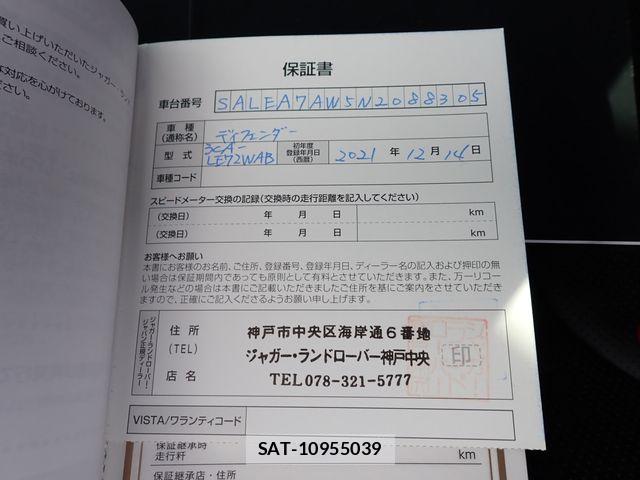 買い上げいただいたジャガー・ラン
ご相談ください。
な対応を心がけております。
ださい。
保証書
車台番号 SALEA7AW5N2088305
車種
(通称名) ディフェンダー
型式 3CA-
LE72WAB
初年度
登録年月日
(西暦)
2021 年 12 月 14 日
車種コード
スピードメーター交換の記録(交換時の走行距離を記入してください)
(交換日) 年 月 日 km
(交換日) 年 月 日 km
お客様へお願い
本書にお客様のお名前、ご住所、登録番号、登録年月日、ディーラー名の記入および押印の無
い場合は保証期間内であっても原則として有料とさせていただきます。また、万一リコー
ル発生などの場合は本書にご記載いただきましたご住所を基にご案内をさせていただき
ますので、正確にご記入くださるようお願い申し上げます。
ジャガー・ランドローバー・
ジャパン正規ディーラー
住所 神戸市中央区海岸通6番地
(TEL) ジャガー・ランドローバー神戸中央 印
店名 TEL078-321-5777
VISTA/ワランティコード
保証継承時
走行粁 km
保証継承店・住所
SAT-10955039